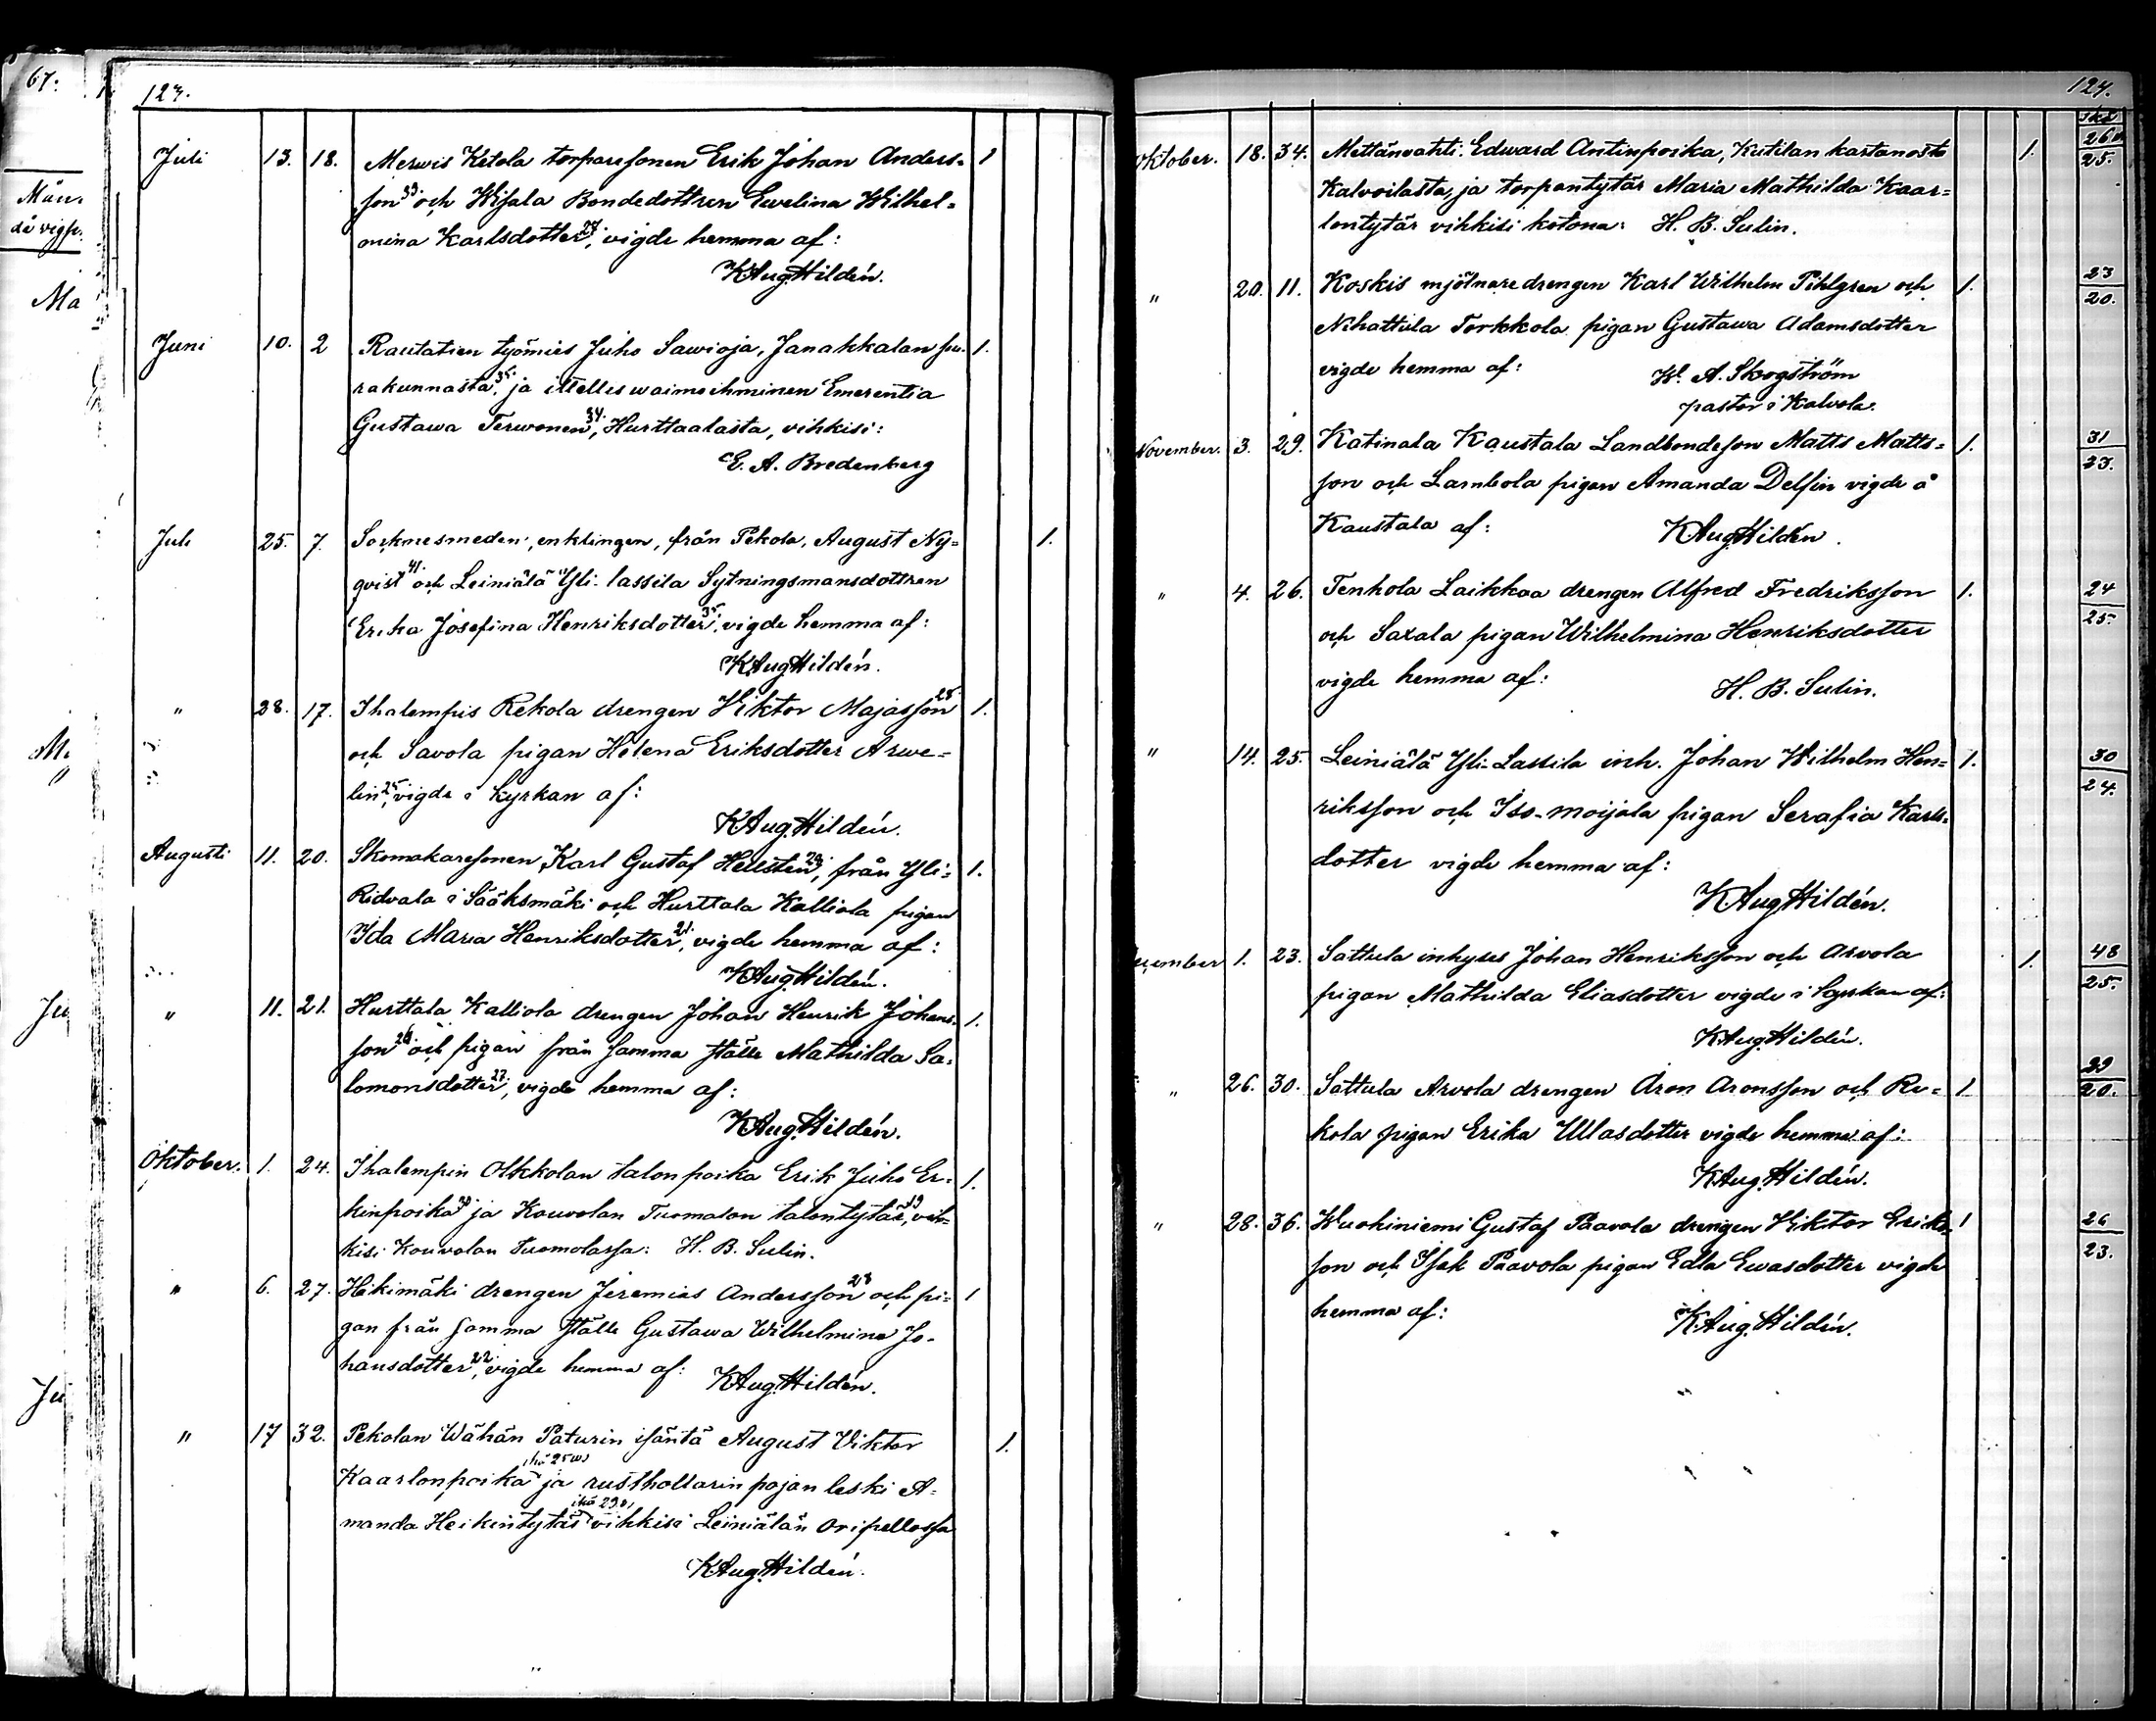 67.
Mån.
då vigs.
Ma
123.
Juli 13. 18. Merwis Ketola torparesonen Erik Johan Anders- 1
son 33. och Wisala Bondedottren Ewelina Wilhel-
mina Karlsdotter 27., vigde hemma af:
K Aug. Hildén.
Juni 10. 2 Rautatien työmies Juho Sawioja, Janakkalan seu- 1.
rakunnasta 35., ja itsellis waimoihminen Emerentia
Gustawa Terwonen 34., Hurttaalasta, vihkisi:
E. A. Bredenberg
Juli 25. 7. Socknesmeden, enklingen, från Pekola, August Ny- 1.
qvist 41. och Leiniälä Yli-lassila Sytningsmansdottren
Erika Josefina Henriksdotter 35., vigde hemma af:
K Aug. Hildén.
" 28. 17. Ihalempis Rekola drengen Viktor Majasson 25. 1.
och Savola pigan Helena Eriksdotter Arwe-
lin 25., vigde i Kyrkan af:
K Aug. Hildén.
Augusti 11. 20. Skomakaresonen Karl Gustaf Hellsten 20., från Yli- 1.
Ridvala i Sääksmäki och Hurttala Kalliola pigan
Ida Maria Henriksdotter 21., vigde hemma af:
K Aug. Hildén.
" 11. 21. Hurttala Kalliola drengen Johan Henrik Johans- 1.
son och pigan från samma ställe Mathilda Sa-
lomonsdotter 27., vigde hemma af:
K Aug. Hildén.
Oktober. 1. 24. Ihalempin Olkkolan talonpoika Erik Juho Er- 1.
kinpoika ja Kouvolan Tuomolan talontytär 19, vih-
kisi Kouvolan Tuomolassa: H. B. Sulin.
" 6. 27. Heikimäki drengen Jeremias Andersson 23 och pi- 1
gan från samma ställe Gustawa Wilhelmina Jo-
hansdotter 22., vigde hemma af: K Aug. Hildén.
" 17 32. Pekolan Wähän Paturin isäntä August Viktor 1.
Kaarlonpoika ikä 25 w. ja rusthollarin pojan leski A-
manda Heikintytär ikä 29 v. vihkisi Leiniälän Oripellossa
K Aug. Hildén.
124.
Oktober. 18. 34. Mettänvahti Edward Antinpoika, Kutilan kartanosta 1. 26 / 25.
Kalvoilasta, ja torpantytär Maria Mathilda Kaar-
lontytär vihkisi kotona: H. B. Sulin.
" 20. 11. Koskis mjölnaredrengen Karl Wilhelm Pihlgren och 1. 23 / 20.
Nihattula Torkkola pigan Gustawa Adamsdotter
vigde hemma af: W. A. Skogström
pastor i Kalvola.
November. 3. 29. Katinala Kaustala Landbondeson Matts Matts- 1. 31 / 23.
son och Lambola pigan Amanda Delfin vigde å
Kaustala af: K Aug. Hildén.
" 4. 26. Tenhola Laikkaa drengen Alfred Fredriksson 1. 24 / 25.
och Saxala pigan Wilhelmina Henriksdotter
vigde hemma af: H. B. Sulin.
" 14. 25. Leiniälä Yli-Lassila inh. Johan Wilhelm Hen- 1. 30 / 24.
riksson och Iso-moijala pigan Serafia Karls-
dotter vigde hemma af:
K Aug. Hildén.
ecember 1. 23. Sattula inhyses Johan Henriksson och Arvola 1. 48 / 25.
pigan Mathilda Eliasdotter vigde i Kyrkan af:
K Aug. Hildén.
" 26. 30. Sattula Arvola drengen Aron Aronsson och Re- 1. 29 / 20.
kola pigan Erika Ullasdotter vigde hemma af:
K Aug. Hildén.
" 28. 36. Wuohiniemi Gustaf Paavola drengen Viktor Eriks- 1 26 / 23.
son och Isak Paavola pigan Edla Ewasdotter vigde
hemma af: K Aug. Hildén.